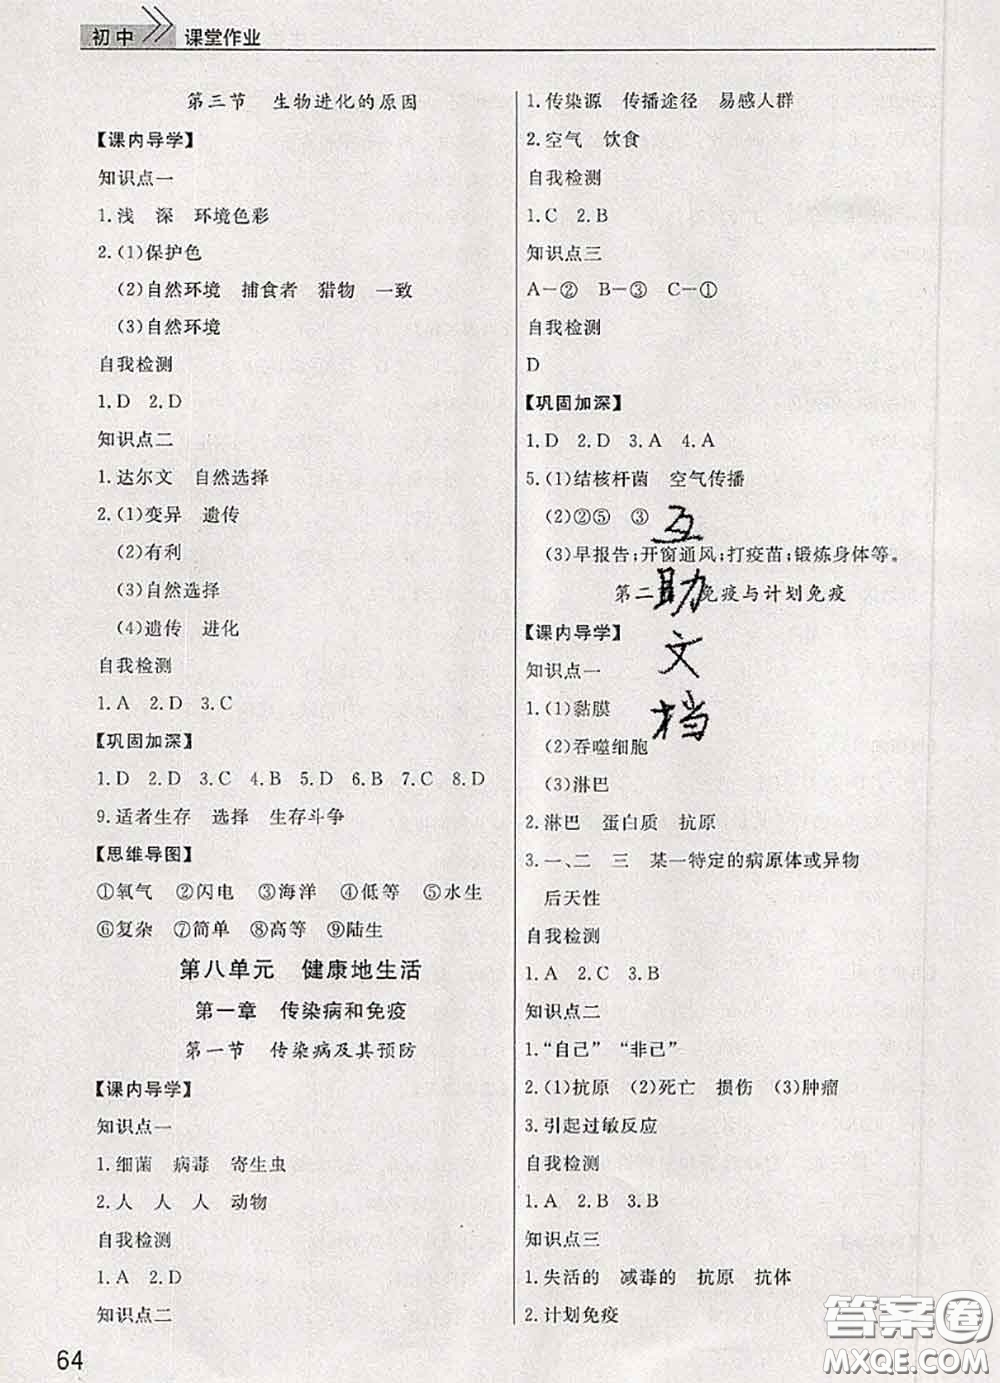 初中 课堂作业
第三节 生物进化的原因
【课内导学】
知识点一
1.浅 深 环境色彩
2.(1)保护色
(2)自然环境 捕食者 猎物 一致
(3)自然环境
自我检测
1.D 2.D
知识点二
1.达尔文 自然选择
2.(1)变异 遗传
(2)有利
(3)自然选择
(4)遗传 进化
自我检测
1.A 2.D 3.C
【巩固加深】
1.D 2.D 3.C 4.B 5.D 6.B 7.C 8.D
9.适者生存 选择 生存斗争
【思维导图】
①氧气 ②闪电 ③海洋 ④低等 ⑤水生
⑥复杂 ⑦简单 ⑧高等 ⑨陆生
第八单元 健康地生活
第一章 传染病和免疫
第一节 传染病及其预防
【课内导学】
知识点一
1.细菌 病毒 寄生虫
2.人 人 人 动物
自我检测
1.A 2.D
知识点二
64
1.传染源 传播途径 易感人群
2.空气 饮食
自我检测
1.C 2.B
知识点三
A—② B—③ C—①
自我检测
D
【巩固加深】
1.D 2.D 3.A 4.A
5.(1)结核杆菌 空气传播
(2)②⑤ ③
(3)早报告;开窗通风;打疫苗;锻炼身体等。
第二 免疫与计划免疫
【课内导学】
知识点一
1.(1)黏膜
(2)吞噬细胞
(3)淋巴
2.淋巴 蛋白质 抗原
3.一、二 三 某一特定的病原体或异物
后天性
自我检测
1.A 2.C 3.B
知识点二
1.“自己” “非己”
2.(1)抗原 (2)死亡 损伤 (3)肿瘤
3.引起过敏反应
自我检测
1.A 2.B 3.B
知识点三
1.失活的 减毒的 抗原 抗体
2.计划免疫
互
助
文
档
答案卷
MXQE.COM